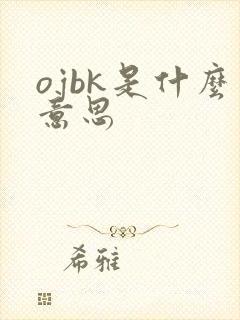 ojbk是什麽
意思
希雅